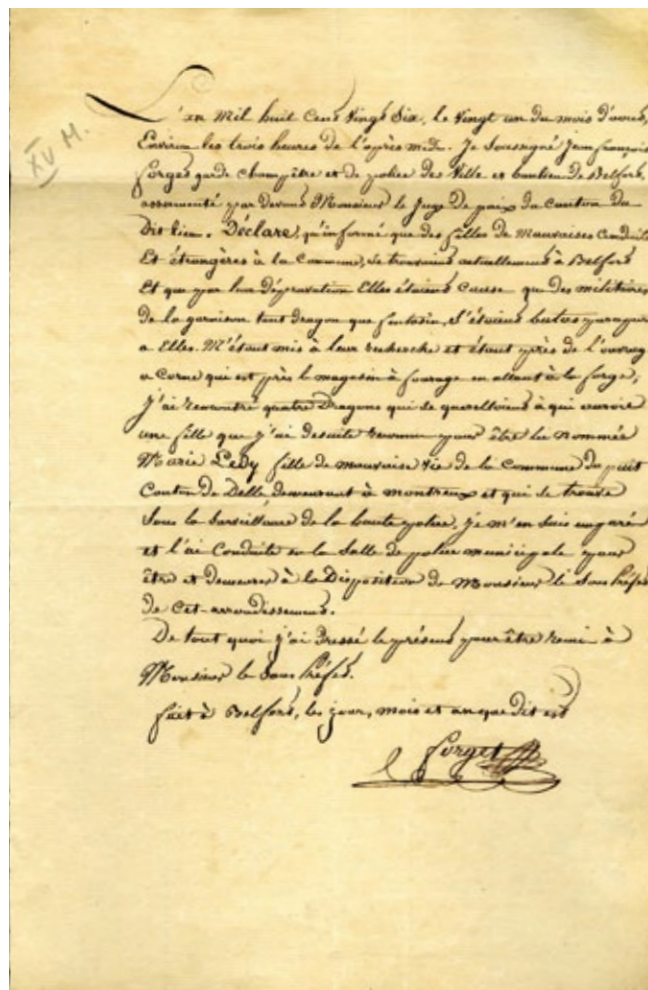 XV M.
L'an Mil huit Cent Vingt Six, le Vingt un du mois d'avril,
Environ les trois heures de l'après midi. Je Soussigné Jean françois
forget garde champêtre et de police des Ville et banlieu de Belfort,
assermenté par devant Monsieur le Juge de paix du Canton du
dit lieu. Déclare, qu'informé que des filles de Mauvaises Conduite
Et étrangères à la Commune, se trouvaient actuellement à Belfort
Et que par leur dépravation Elles étaient Cause que des militaires
de la garnison tant dragon que fantasin, s'étaient battus
a Elles. M'étant mis à leur recherche et étant près de l'ouvrag
a Corne qui est près le magasin à fourage en allant à la forge,
J'ai rencontré quatre Dragons qui se querelloient à qui auroit
une fille que j'ai desuite reconnu pour être la nommée
Marie Ledy fille de mauvaise vie de la Commune du puit
Canton de Delle demeurant à montreux et qui se trouve
Sous la Surveillance de la haute police, Je m'en suis emparé
et l'ai Conduite en la Salle de police municipale pour
être et demeurer à la Disposition de Monsieur le Sous Préfet
de Cet arrondissement.
De tout quoi j'ai Dressé le présent pour être remi à
Monsieur le Sous Préfet.
fait à Belfort, les jour, mois et an que dit est
forget